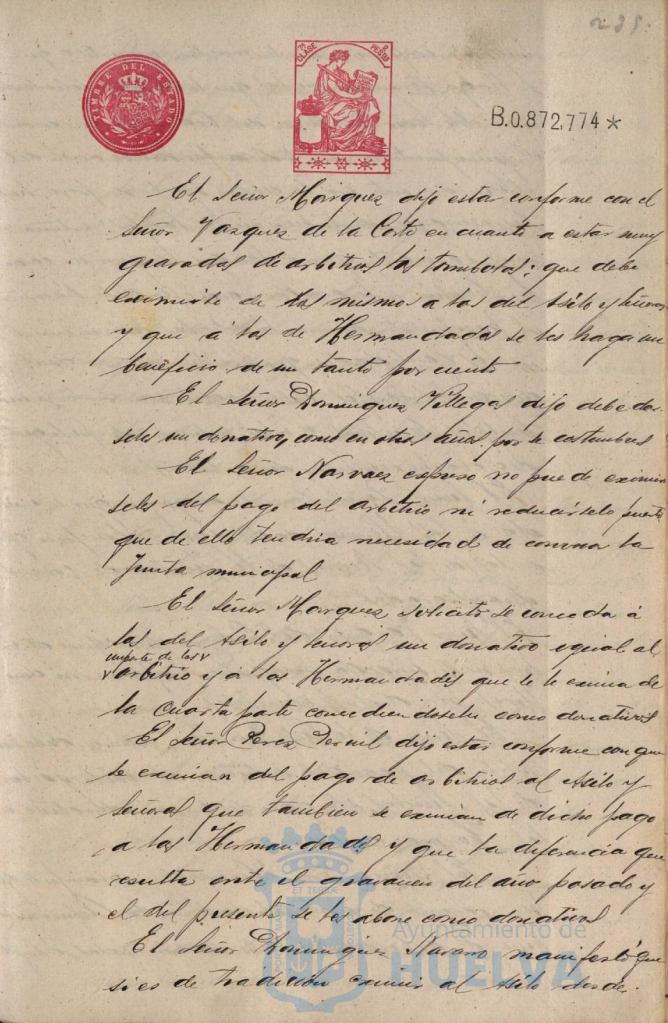 235.
TIMBRE DEL ESTADO
7ª CLASE 2 PESETAS
B.0.872,774 *
El Señor Márquez dijo estar conforme con el
Señor Vazquez de la Corte en cuanto a estar muy
gravadas de arbitrios las tombolas; que debe
eximirse de los mismos a las del Asilo y Señoras
y que á las de Hermandades se les haga un
beneficio de un tanto por ciento
El Señor Dominguez Villegas dijo debe dar
seles un donativo, como en otros años por
El Señor Narvaez expuso no puede eximir
seles del pago del arbitrio ni reducirselo puesto
que de ello tendria necesidad de conocer la
Junta municipal
El Señor Marquez solicitó se conceda á
las del Asilo y Señoras un donativo igual al
importe de los
arbitrio y á las Hermandades que se le exima de
la cuarta parte concediendoselas como donativos
El Señor Perez Pernil dijo estar conforme con que
se eximan del pago de arbitrios al Asilo y
Señoras que tambien se eximan de dicho pago
a las Hermandades y que la diferencia que
resulta entre el gravamen del año pasado y
el del presente se les abone como donativos
El Señor Dominguez Navarro manifestó que
si es de tradición eximir al Asilo desde
Ayuntamiento de
HUELVA